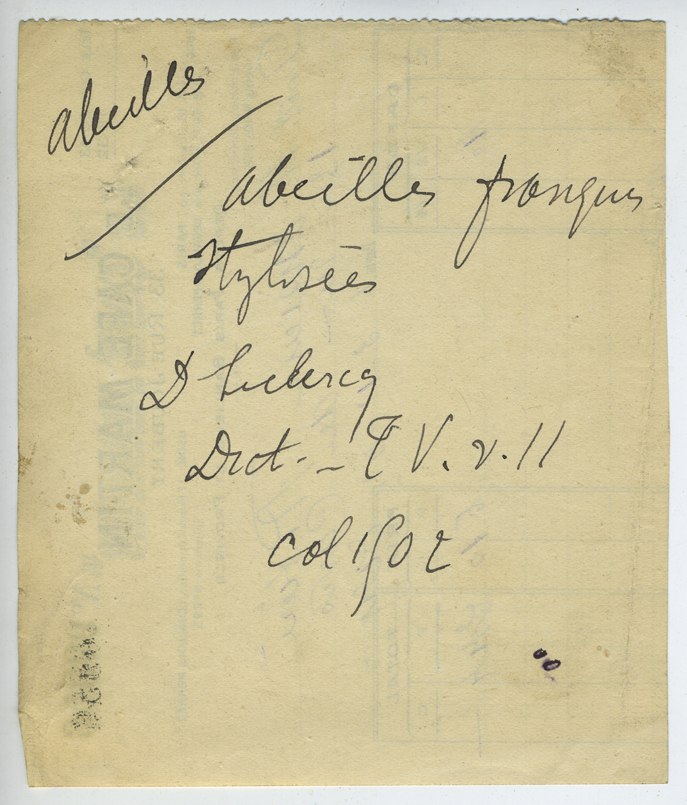 abeilles
abeilles franques
stylisées
D Leclercq
Dict. - T V. 2. 11
col 1902